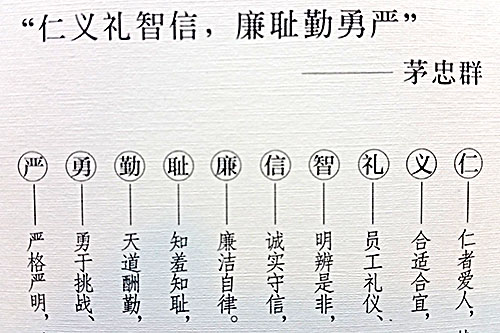 “仁义礼智信，廉耻勤勇严”
——茅忠群
仁——仁者爱人，
义——合适合宜，
礼——员工礼仪、
智——明辨是非，
信——诚实守信，
廉——廉洁自律。
耻——知羞知耻，
勤——天道酬勤，
勇——勇于挑战、
严——严格严明，